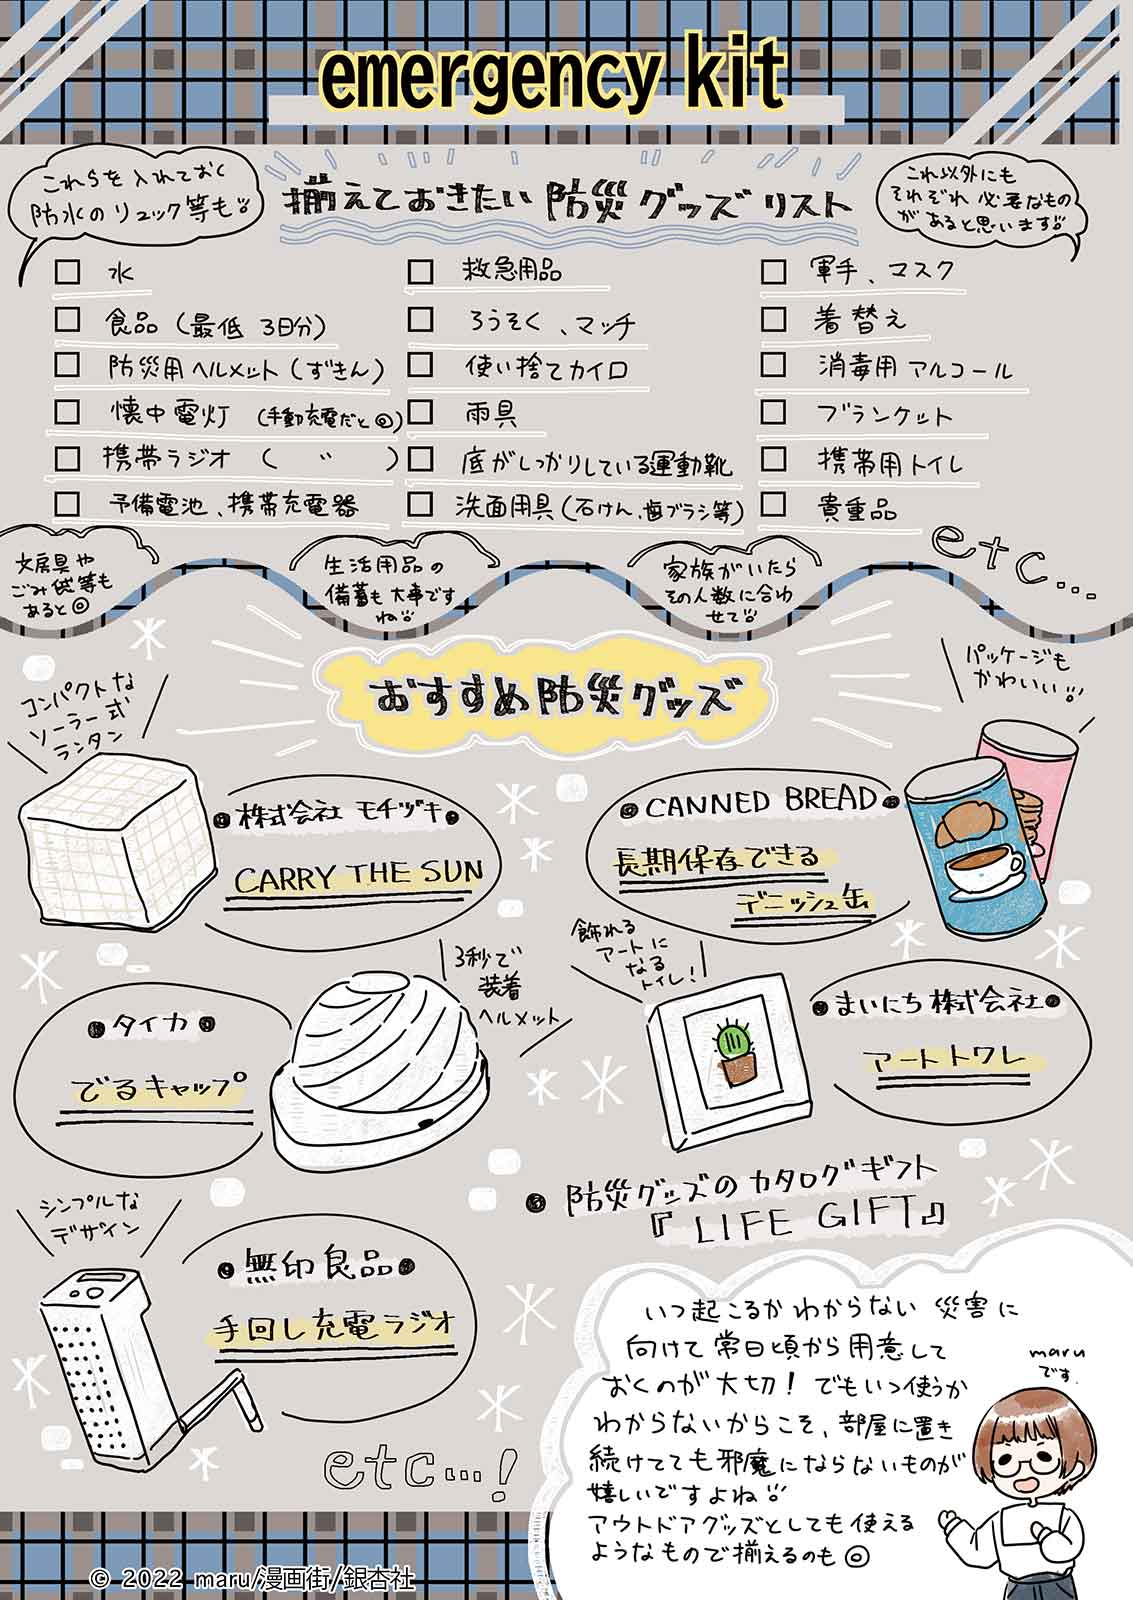 emergency kit
これらを入れておく
防水のリュック等も
揃えておきたい防災グッズリスト
これ以外にも
それぞれ必要なもの
があると思います
水
食品（最低3日分）
防災用ヘルメット（ずきん）
懐中電灯（手動充電だと◎）
携帯ラジオ（ 〃 ）
予備電池、携帯充電器
救急用品
ろうそく、マッチ
使い捨てカイロ
雨具
底がしっかりしている運動靴
洗面用具（石けん、歯ブラシ等）
軍手、マスク
着替え
消毒用アルコール
ブランケット
携帯用トイレ
貴重品
etc...
文房具や
ごみ袋等も
あると◎
生活用品の
備蓄も大事です
ね
家族がいたら
その人数に合わ
せて
おすすめ防災グッズ
コンパクトな
ソーラー式
ランタン
株式会社モチヅキ
CARRY THE SUN
パッケージも
かわいい
CANNED BREAD
長期保存できる
デニッシュ缶
3秒で
装着
ヘルメット
タイカ
でるキャップ
飾れる
アートに
なる
トイレ！
まいにち株式会社
アートトワレ
シンプルな
デザイン
無印良品
手回し充電ラジオ
etc...!
防災グッズのカタログギフト
『LIFE GIFT』
いつ起こるかわからない災害に
向けて常日頃から用意して
おくのが大切！でもいつ使うか
わからないからこそ、部屋に置き
続けてても邪魔にならないものが
嬉しいですよね
アウトドアグッズとしても使える
ようなもので揃えるのも◎
maru
です.
© 2022 maru/漫画街/銀杏社